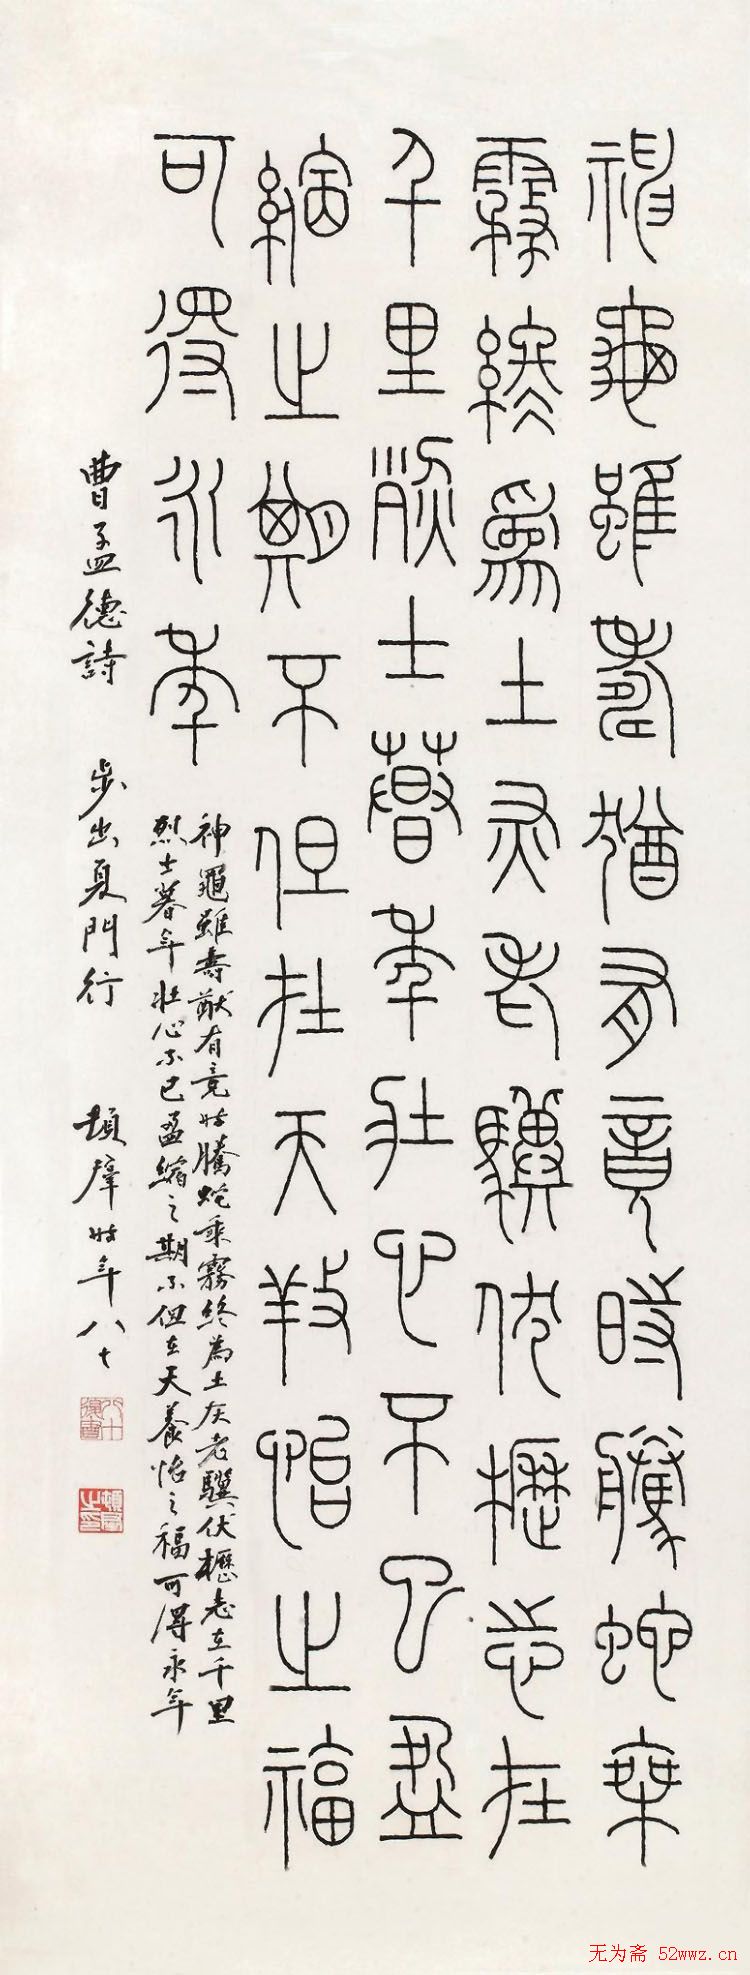 神龜雖壽猶有竟時騰蛇椉
霧終為土灰老驥伏櫪志在
千里烈士暮年壯心不已盈
縮之期不但在天養怡之福
可得永年
神龜雖壽猷有竟時騰蛇乘霧終為土灰老驥伏櫪志在千里
烈士暮年壯心不已盈縮之期不但在天養怡之福可得永年
曹孟德詩 步出夏門行 蕴庠時年八十
无为斋 52wwz.cn